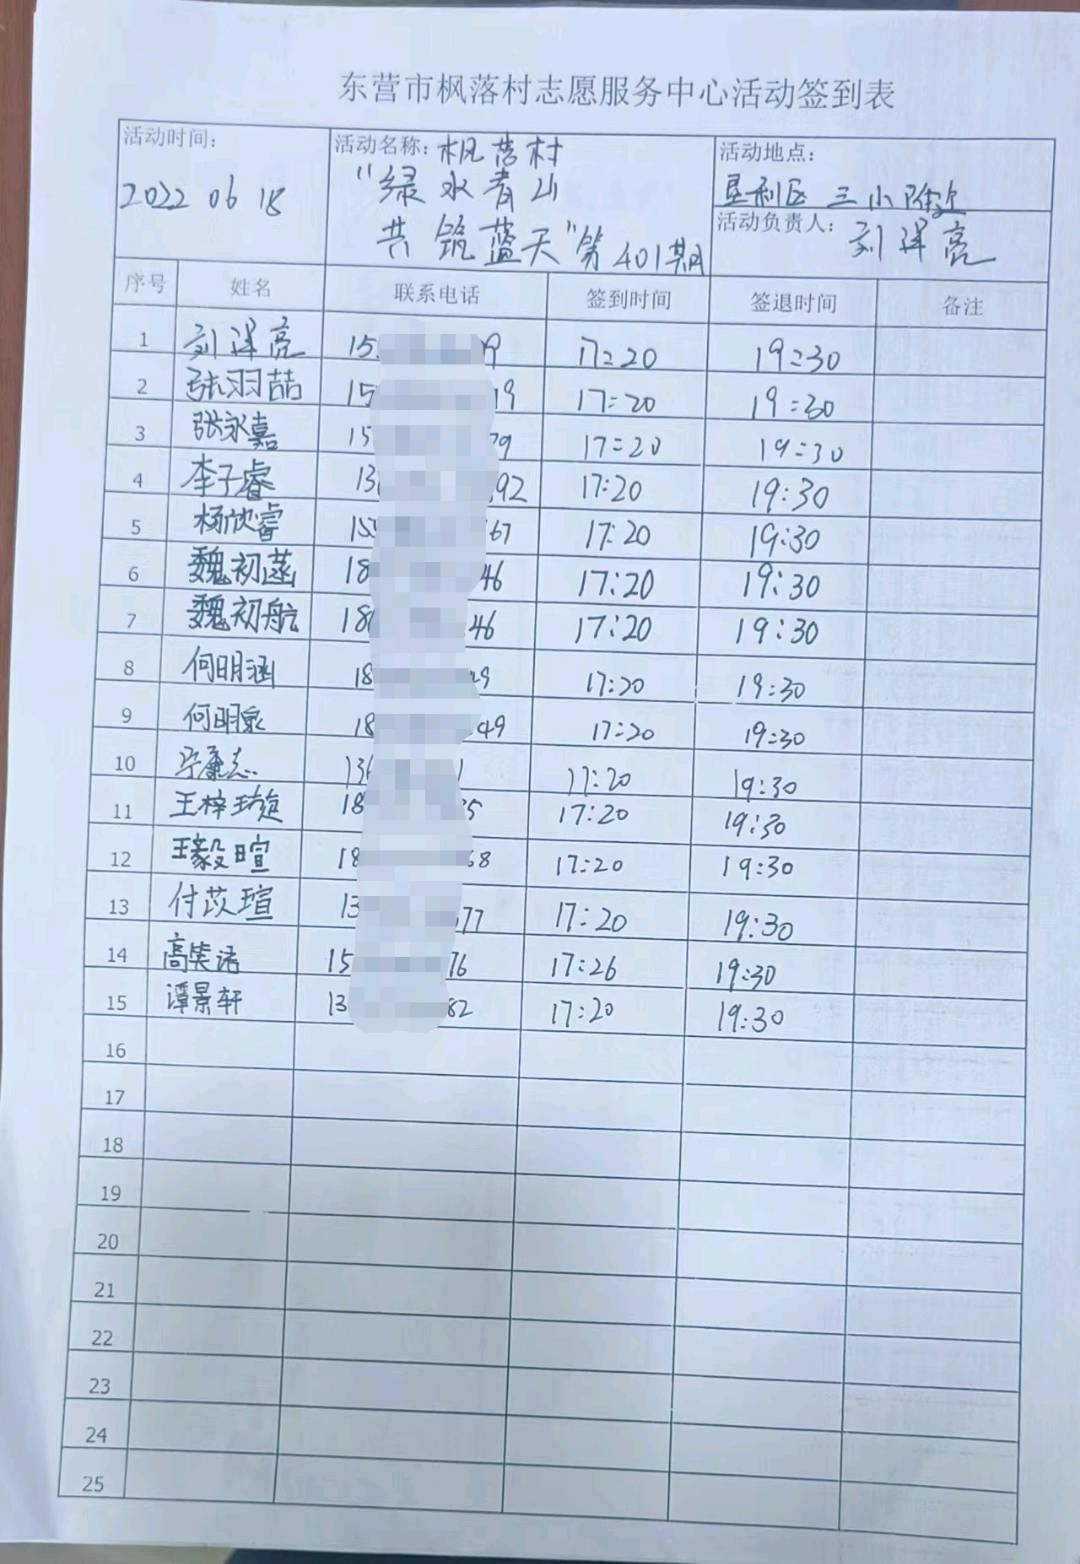 东营市枫落村志愿服务中心活动签到表
活动时间: 2022 06 18
活动名称: 枫营村
"绿水青山
共筑蓝天"第401期
活动地点:
垦利区 三小附近
活动负责人: 刘泽亮
序号 姓名 联系电话 签到时间 签退时间 备注
1 刘泽亮 15 9 17:20 19:30
2 张羽喆 15 19 17:20 19:30
3 张永嘉 15 79 17:20 19:30
4 李子睿 13 92 17:20 19:30
5 杨欣睿 155 67 17:20 19:30
6 魏初菡 18 46 17:20 19:30
7 魏初航 18 46 17:20 19:30
8 何明涵 18 49 17:20 19:30
9 何明 18 49 17:20 19:30
10 136 1 17:20 19:30
11 王梓璇 18 35 17:20 19:30
12 王毅暄 18 68 17:20 19:30
13 付苡瑄 13 77 17:20 19:30
14 高笑语 15 76 17:26 19:30
15 谭景轩 13 82 17:20 19:30
16
17
18
19
20
21
22
23
24
25